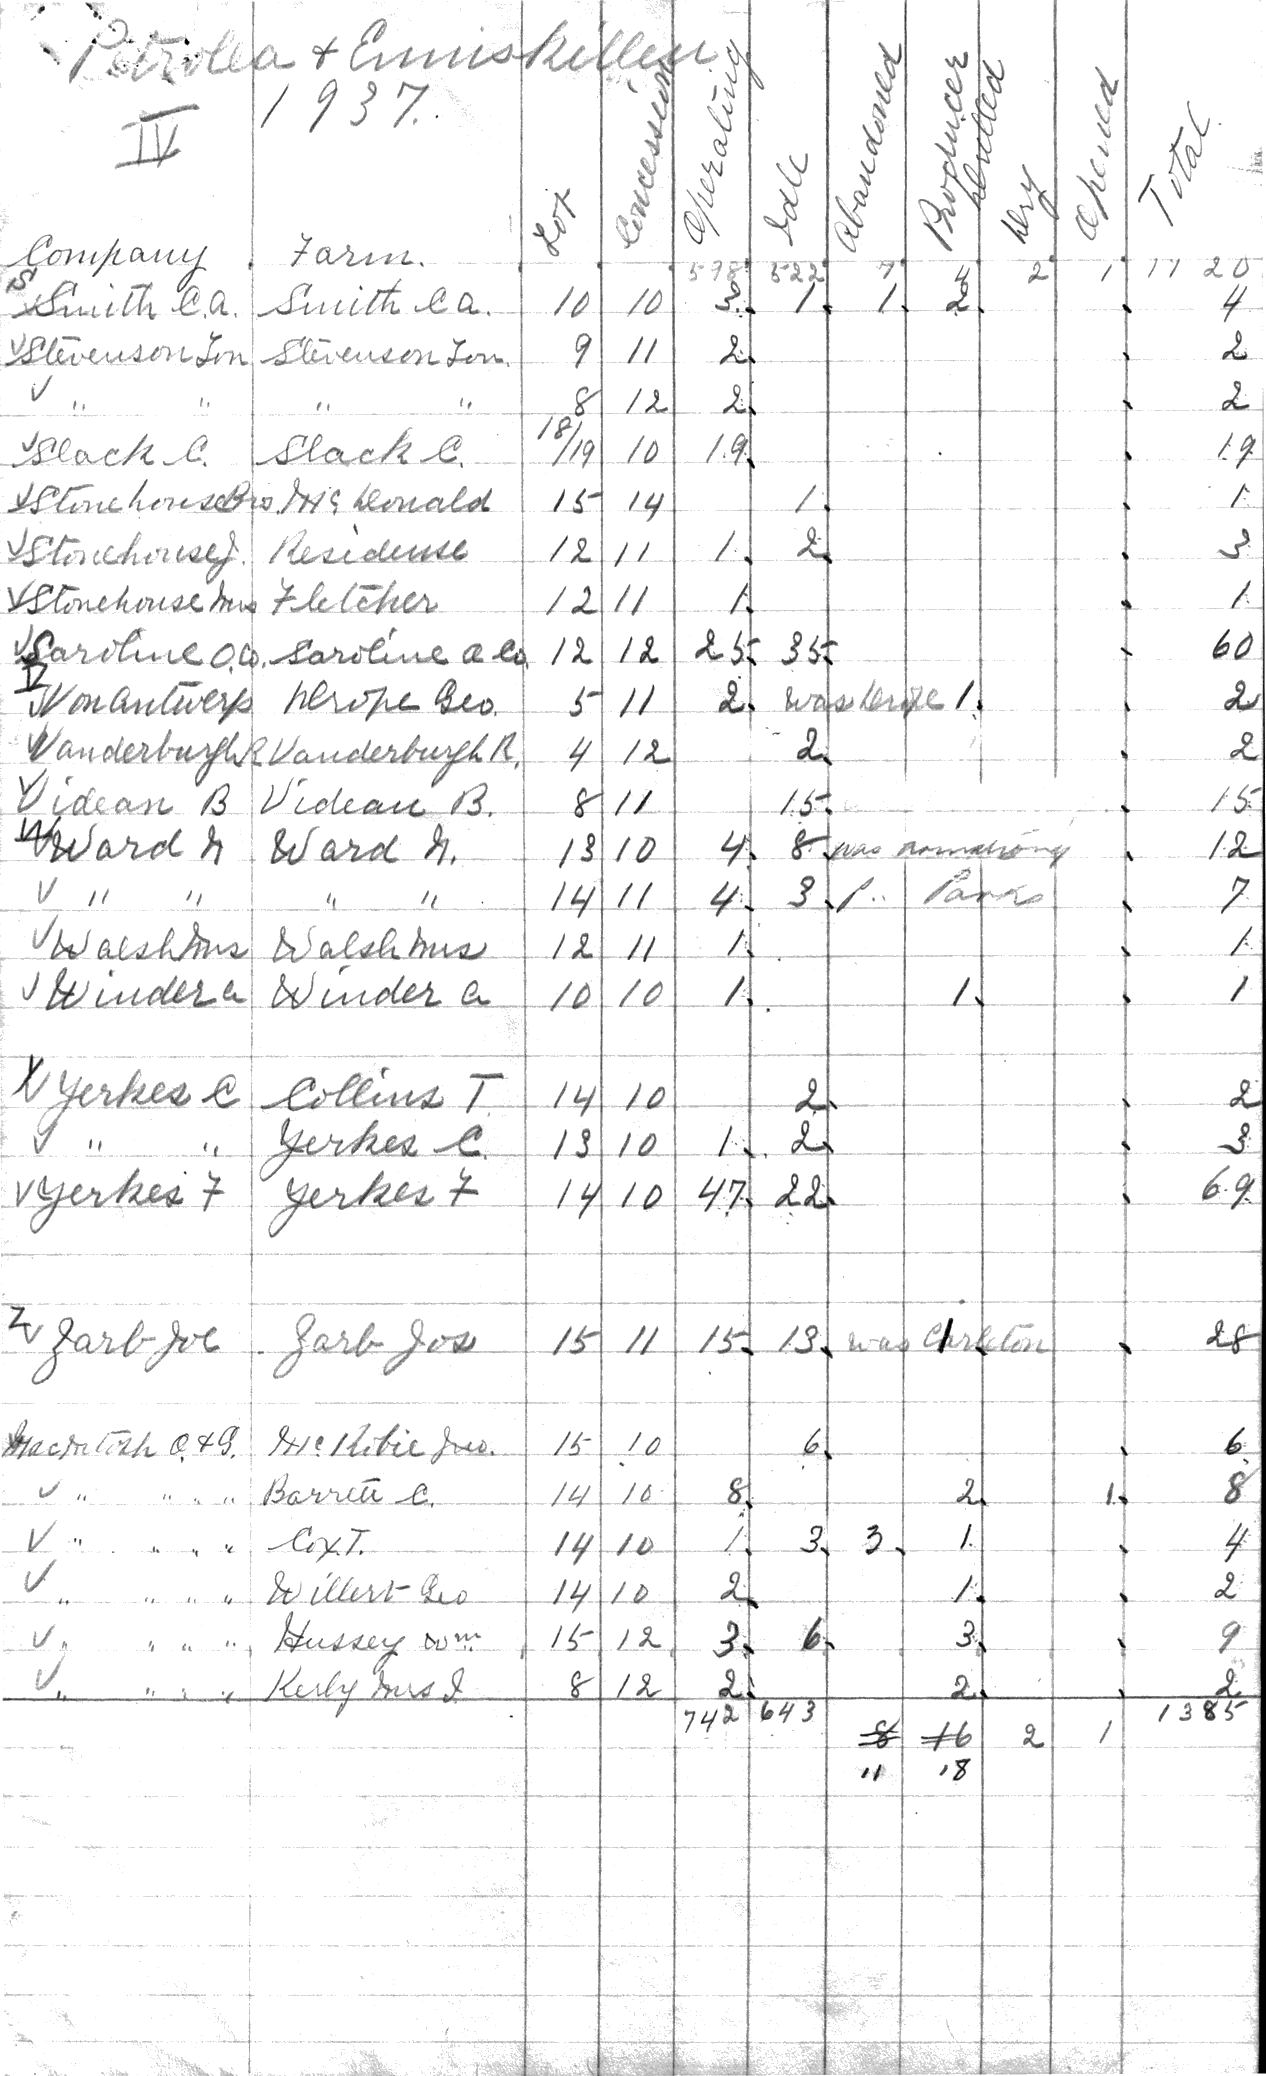 Petrolea & Enniskillen
1937.
IV
Company Farm. Lot Concession Operating Idle Abandoned Producer Drilled Dry Opened Total
578 522 7 4 2 1 1120
S
Smith C.A. Smith C A. 10 10 3 1 1 2 4
√ Stevenson Jon Stevenson Jon. 9 11 2 2
√ " " " " 8 12 2 2
√ Slack C. Slack C. 18/19 10 19 19
√ Stonehouse Bro. McDonald 15 14 1 1
√ Stonehouse J. Residense 12 11 1 2 3
√ Stonehouse Mrs Fletcher 12 11 1 1
√ Saroline O.Co. Saroline O Co. 12 12 25 35 60
V
√ VonAntwerp Drope Geo. 5 11 2 was Drope 1 2
√ Vanderburgh R Vanderburgh R. 4 12 2 2
√ Videan B Videan B. 8 11 15 15
W
√ Ward N Ward N. 13 10 4 8 was Armstrong 12
√ " " " " 14 11 4 3 " Parks 7
√ Walsh Mrs Walsh Mrs 12 11 1 1
√ Winder A Winder A 10 10 1 1 1
Y
√ Yerkes C Collins T 14 10 2 2
√ " " Yerkes C. 13 10 1 2 3
√ Yerkes F Yerkes F 14 10 47 22 69
Z
√ Zarb Joe Zarb Jos 15 11 15 13 was Carleton 1 28
MacIntosh O. & G. McRobie Jno. 15 10 6 6
√ " " " " Barrett C. 14 10 8 2 1 8
√ " " " " Cox T. 14 10 1 3 3 1 4
√ " " " " Willert Geo 14 10 2 1 2
√ " " " " Hussey Wm. 15 12 3 6 3 9
√ " " " " Kerby Mrs J. 8 12 2 2 2
742 643 1385
8 16 2 1
11 18